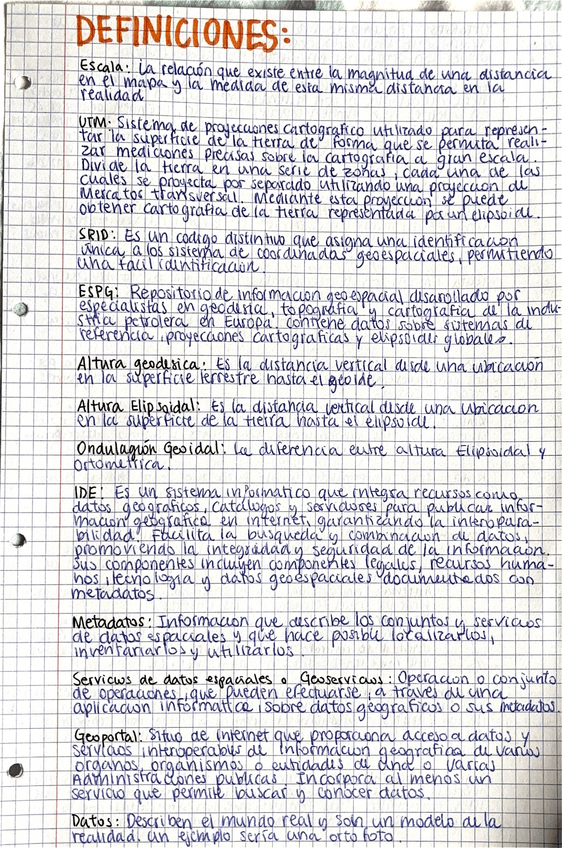 DEFINICIONES:
Escala: La relación que existe entre la magnitud de una distancia
en el mapa y la medida de esta misma distancia en la
realidad
UTM: Sistema de proyecciones cartografico utilizado para represen-
tar la superficie de la tierra de forma que se permita reali-
zar mediciones precisas sobre la cartografia a gran escala.
Divide la tierra en una serie de zonas, cada una de las
cuales se proyecta por separado utilizando una proyeccion de
Mercator transversal. Mediante esta proyeccion se puede
obtener cartografia de la tierra representada por un elipsoide.
SRID: Es un codigo distintivo que asigna una identificacion
unica a los sistema de coordenadas geoespaciales, permitiendo
una facil identificacion.
ESPG: Repositorio de informacion geoespacial desarollado por
especialistas en geodesia, topografia y cartografia de la indu-
stria petrolera en Europa. contiene datos sobre sistemas de
referencia, proyecciones cartograficas y elipsoides globales.
Altura geodesica: Es la distancia vertical desde una ubicacion
en la superficie terrestre hasta el geoide.
Altura Elipsoidal: Es la distancia vertical desde una ubicacion
en la superficie de la tierra hasta el elipsoide.
Ondulagión Geoidal: La diferencia entre altura Elipsoidal y
ortometrica.
IDE: Es un sistema informatico que integra recursos como
datos geograficos, catalogos y servidores para publicar infor-
macion geografica en internet, garantizando la interopera-
bilidad. Facilita la busqueda y combinacion de datos,
promoviendo la integridad y seguridad de la informacion.
Sus componentes incluyen componentes legales, recursos huma-
nos, tecnologia y datos geoespaciales documentados con
metadatos.
Metadatos: Informacion que describe los conjuntos y servicios
de datos espaciales y que hace posible localizarlos,
inventariarlos y utilizarlos.
Servicios de datos espaciales o Geoservicios: Operacion o conjunto
de operaciones, que pueden efectuarse, a través de una
aplicacion informatica, sobre datos geograficos o sus metadatos.
Geoportal: Sitio de internet que proporciona acceso a datos y
servicios interoperables de informacion geografica de varios
organos, organismos o entidades de una o varias
Administraciones publicas. Incorpora al menos un
servicio que permite buscar y conocer datos.
Datos: Describen el mundo real y son un modelo de la
realidad. un ejemplo seria una orto foto.